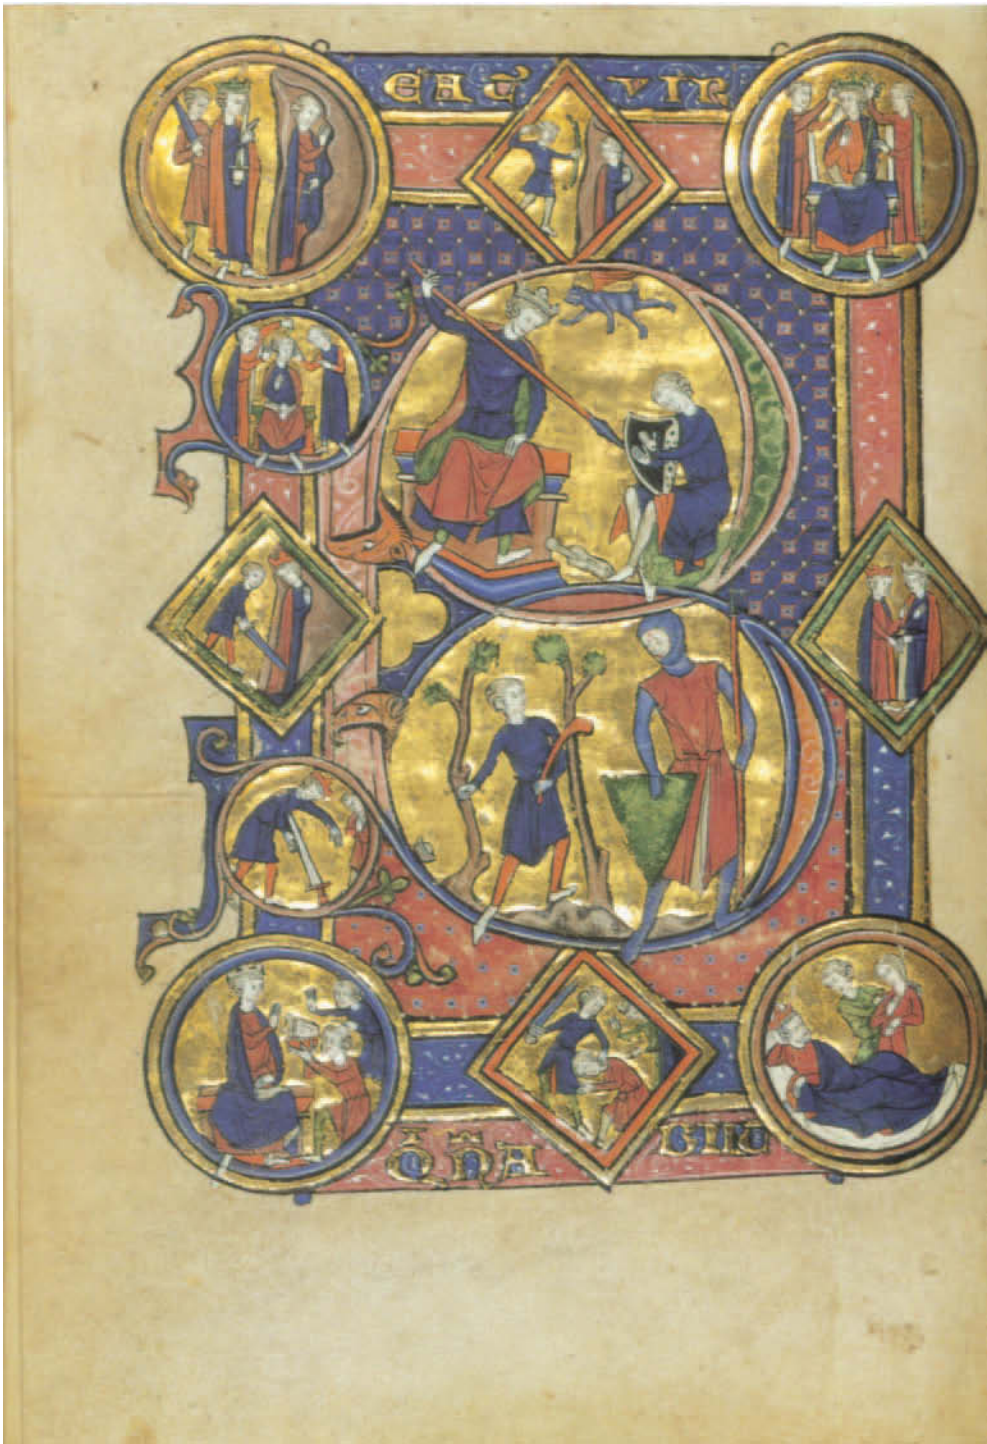 BEAT᾽ VIR
Q̄ N̄ ABIIT